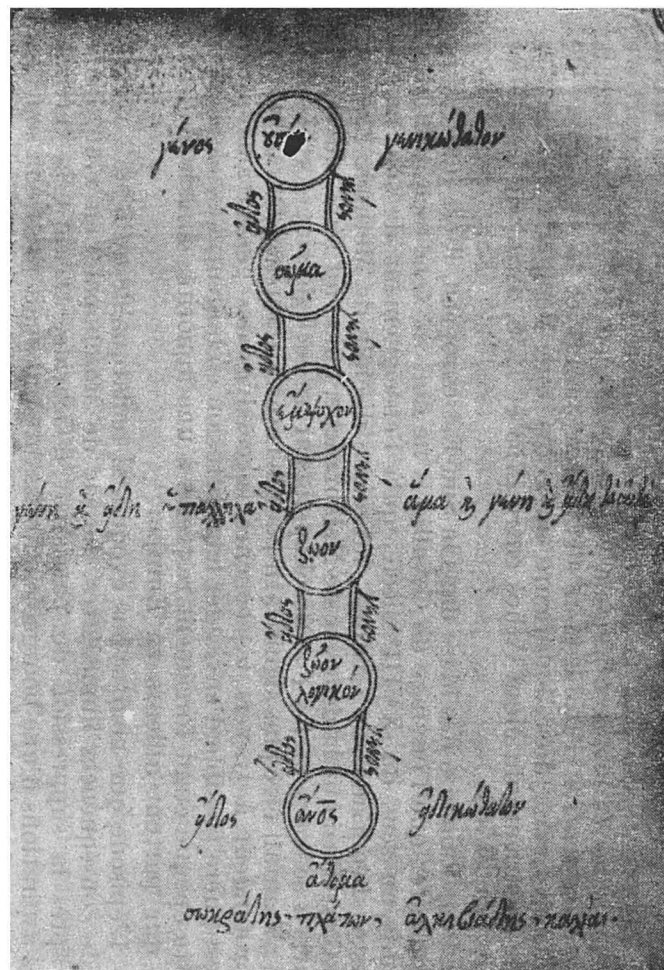 γένος οὐσία γενικώτατον
εἶδος γένος
σῶμα
εἶδος γένος
ἔμψυχον
εἶδος γένος
γένη καὶ εἴδη ὑπάλληλα ἅμα καὶ γένη καὶ εἴδη
ζῶον
εἶδος γένος
ζῶον
λογικόν
εἶδος γένος
εἶδος ἄνος εἰδικώτατον
ἄτομα
σωκράτης πλάτων ἀλκιβιάδης